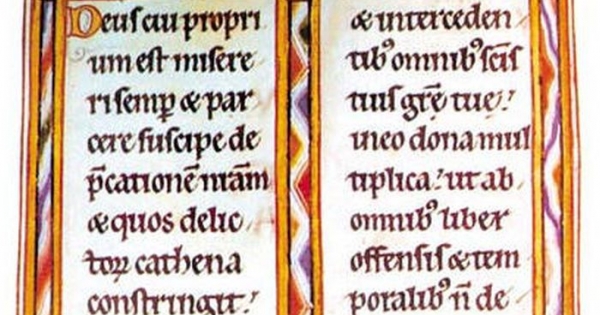 Deus cui propri
um est misere
ri semꝑ & par
cere suscipe de
p̄cationē nr̄am
& quos delic
toꝝ cathena
constringit:
& interceden
tibꝰ omnibꝰ sc̄is
tuis gr̄e tue:
in eo dona mul
tiplica: ut ab
omnibꝰ liber
offensis & tem
poralibꝰ n̄ de